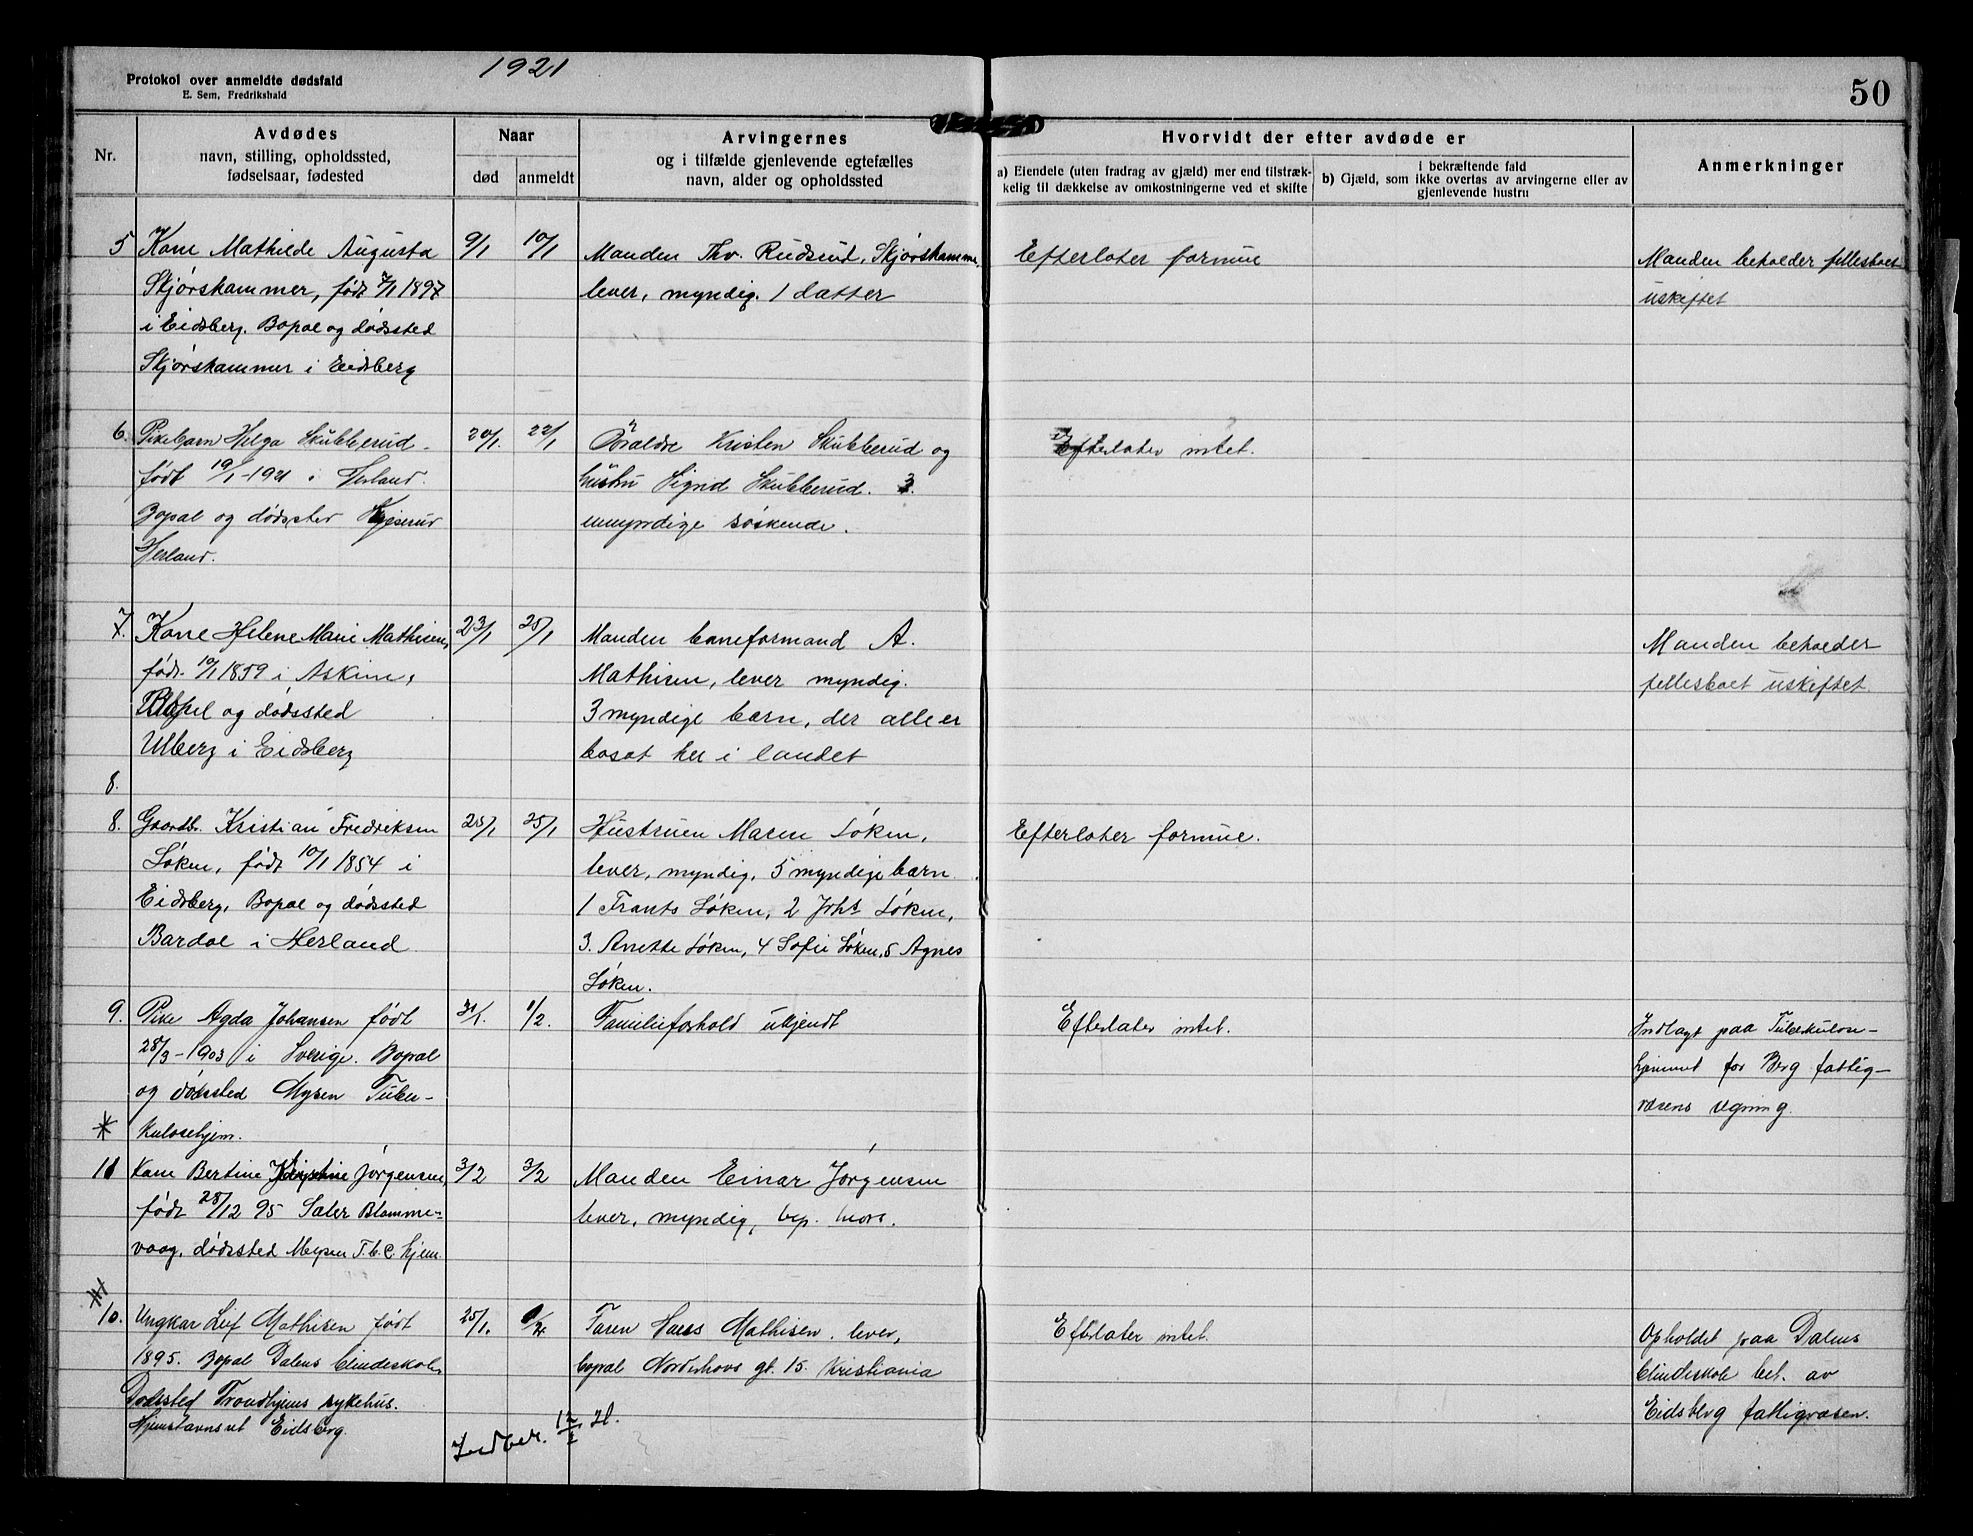 1921
Protokol over anmeldte dødsfald
E. Sem, Fredrikshald
50
Nr.
Avdødes
navn, stilling, opholdssted,
fødselsaar, fødested
Naar
død
anmeldt
Arvingernes
og i tilfælde gjenlevende egtefælles
navn, alder og opholdssted
Hvorvidt der efter avdøde er
a) Eiendele (uten fradrag av gjæld) mer end tilstræk-
kelig til dækkelse av omkostningerne ved et skifte
i bekræftende fald
b) Gjæld, som ikke overtas av arvingerne eller av
gjenlevende hustru
Anmerkninger
5
Kone Mathilde Augusta
Skjørshammer, født 7/1 1897
i Eidsberg. Bopæl og dødssted
Skjørshammer i Eidsberg
9/1
10/1
Manden Thv. Rudsrud, Skjørshammer,
lever, myndig. 1 datter
Efterlater formue
Manden beholder fællesboet
uskiftet
6.
Pikebarn Helga Skubberud
født 19/1-1921 i Herland.
Bopæl og dødssted
Herland.
20/1.
22/1
Kristen Skubberud og
hustru Signe Skubberud. 3.
umyndige søskende.
Efterlater intet.
7.
Kone Helene Marie Mathisen,
født 10/1 1859 i Askim,
Bopæl og dødssted
Ulberg i Eidsberg
23/1
25/1
Manden baneformand A.
Mathisen, lever myndig.
3 myndige børn, der alle er
bosat her i landet
Manden beholder
fællesboet uskiftet
8.
8.
Gaardbr. Kristian Fredriksen
Løken, født 10/1 1854 i
Eidsberg, Bopæl og dødssted
Bardal i Herland
25/1
Hustruen Maren Løken,
lever, myndig, 5 myndige børn
1 Frants Løken, 2 Johs Løken,
3. Anette Løken, 4 Sofie Løken, 5 Agnes
Løken.
Efterlater formue.
9.
Pike Agda Johansen født
28/3-1903 i Sverige. Bopæl
og dødssted Mysen Tuber-
kulosehjem.
31/1.
1/2.
Familieforhold ukjendt
Efterlater intet.
Indlagt paa Tuberkulose-
hjemmet for Berg fattig-
væsens regning.
11
Kone Bertine Jørgensen,
født 28/12 95 Sæter Blomme-
vaag, dødssted Mysen T.b.c. hjem.
3/2
3/2
Manden Einar Jørgensen
lever, myndig,
10.
Ungkar Leif Mathisen født
1895. Bopæl Dalens blindeskole,
Dødssted Trondhjems sykehus.
Hjemstavnsret Eidsberg.
25/1.
Faren Hans Mathisen lever,
bopæl Norderhovs gt. 15. Kristiania
Efterlater intet.
Opholdet paa Dalens
blindeskole bet. av
Eidsberg fattigvæsen.
Indber. 12/2 21.